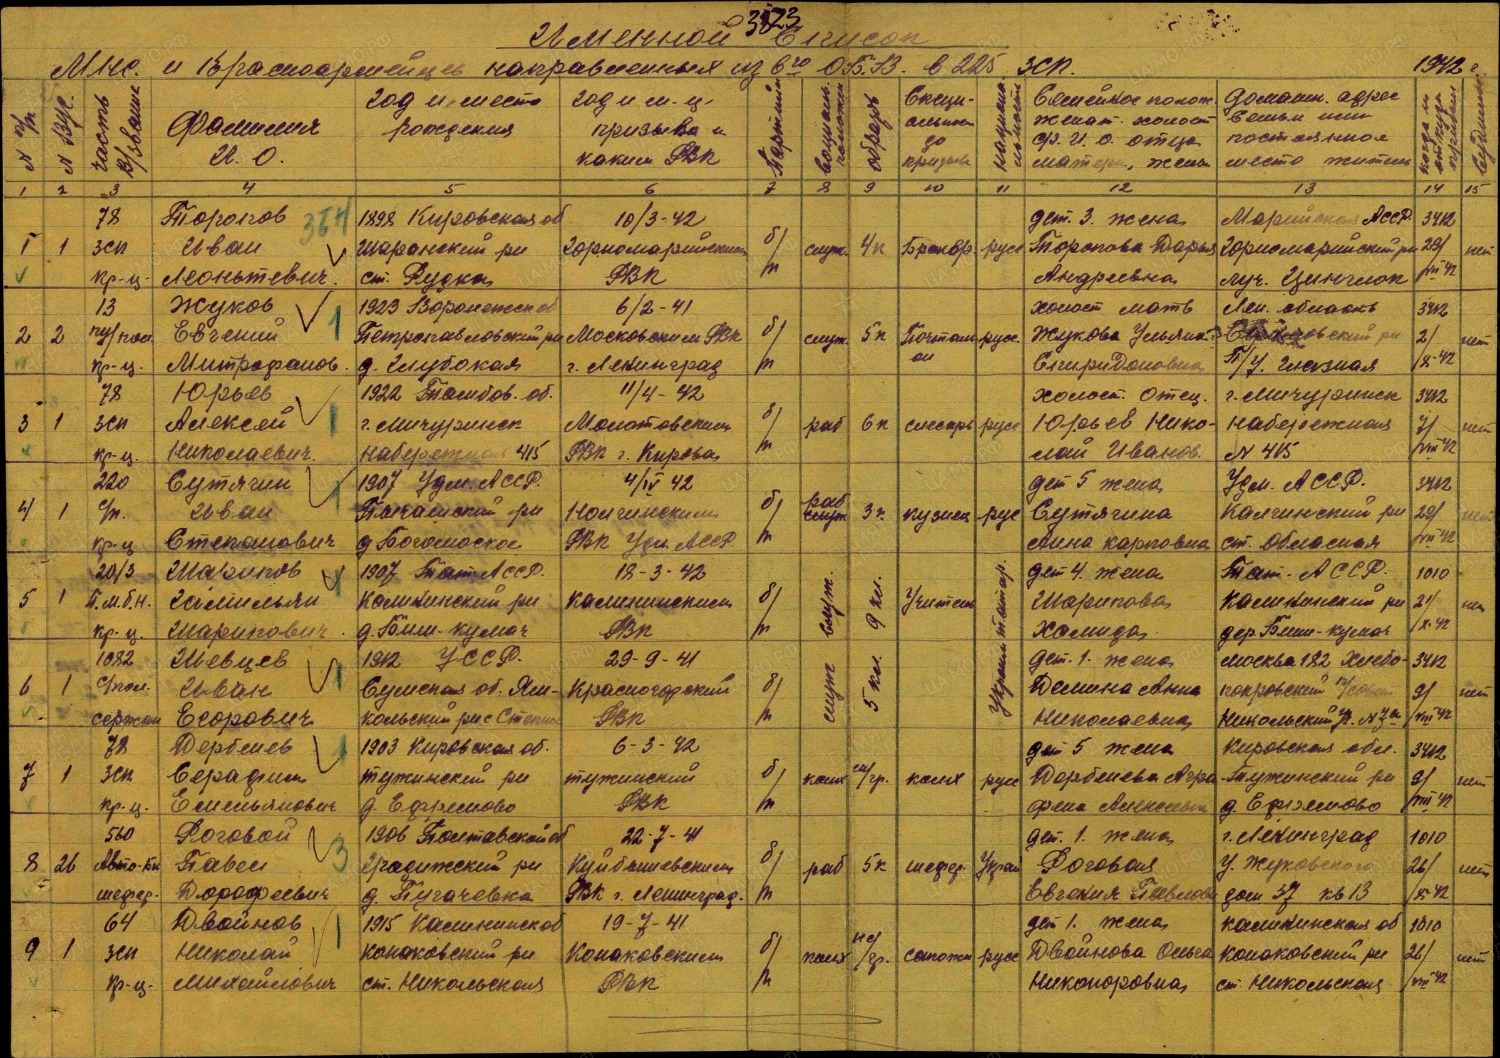 3823
Именной Список
Мнс. и Красноармейцев направленных из 6го О.Б.В. в 225 ЗСП. 1942 г.
N п/п N ВУС. часть в/звание Фамилия И. О. год и место рождения год и м-ц призыва и каким РВК Партийн социальн. положен образов Специальность до призыва национальность Семейное полож. женат. холост Ф. И. О. отца матери, жена домашн. адрес семьи или постоянное место житель когда и откуда прибыл
1 2 3 4 5 6 7 8 9 10 11 12 13 14 15
78 Торопов 364 1898 Кировская об 10/3-42 дет. 3. жена Марийская АССР. 3412
1 1 зсп Иван Шаранский рн Горномарийским б/п служ. 4к русс Торопова Дарья Горномарийский рн 29/ нет
кр-ц- Леонтьевич. ст. Рудка РВК Андреевна VIII 42
13 Жуков 1923 Воронежск об 6/2-41 холост мать Лен. область 3412
2 2 Евгений 1 Петропавловский рн Московским РВК б/п служ. 5к русс. Жукова Ульяна 2/ нет
кр-ц. Митрофанов. д. Глубокая г. Ленинград Спиридоновна X-42
78 Юрьев 1922 Тамбов. об. 11/4-42 холост. Отец. г. Мичуринск 3412
3 1 зсп Алексей 1 г. Мичуринск Молотовским б/п раб 6к слесарь русс Юрьев Нико- набережная 7/ нет
кр-ц. Николаевич. набережная 415 РВК г. Кирова лай Иванов. N 415 VIII 42
220 Сутягин 1907 Удм. АССР. 4/IV 42 дет 5 жена Удм. АССР. 3412
4 1 с/п. Иван 1 рн б/п раб 3к. кузнец рус Сутягина рн 29/ нет
кр-ц Степанович РВК Удм АССР Анна Карповна VIII 42
20/3 Шарипов 1907 Тат АССР. 18-3-42 дет 4. жена Тат. АССР. 1010
5 1 П.м.б.н. Калининский рн Калининским б/п служ. 9 кл. Учитель татар. Шарипова Калининский рн 21/ нет
кр-ц. Шарипович. д. Биш-кумач РВК Хамида дер. Биш-кумач X-42
1082 Шевцев 1912 УССР. 29-9-41 дет. 1. жена Москва 182 Хлебо- 3412
6 1 с/пол. Иван 1 Сумская об. Ям- Красногорский б/п служ 5 кл. Украин Демина Анна покровский 9/ нет
сержан Егорович польский р с Степное РВК Николаевна Никольский VIII 42
78 Дербенев 1903 Кировская об. 6-3-42 дет 5 жена Кировская обл. 3412
7 1 зсп Серафим 1 тужинский рн тужинский б/п колх колх русс Дербенева Агра- Тужинский рн 9/ нет
кр-ц- Емельянович д. Ефремово РВК д. Ефремово VIII 42
560 Роговой 1906 Полтавской об 22-7-41 дет. 1. жена г. Ленинград 1010
8 26 Авто-бн Павел 3 Градижский рн Куйбышевским б/п раб 5к шефер. Украи Роговая у. Жуковского 26/ нет
шефер. Дорофеевич д. Пугачевка РВК г. Ленинград. Евгения Павловн дом 37 кв 13 X-42
64 Двойнов 1915 Калининск об 19-7-41 дет 1. жена калининская об 1010
9 1 зсп Николай 1 Конаковский рн Конаковским б/п колх н/ср. сапожн русс Двойнова Ольга конаковский рн 26/ нет
кр-ц- Михайлович ст. Никольская РВК Никоноровна ст. Никольская VIII 42